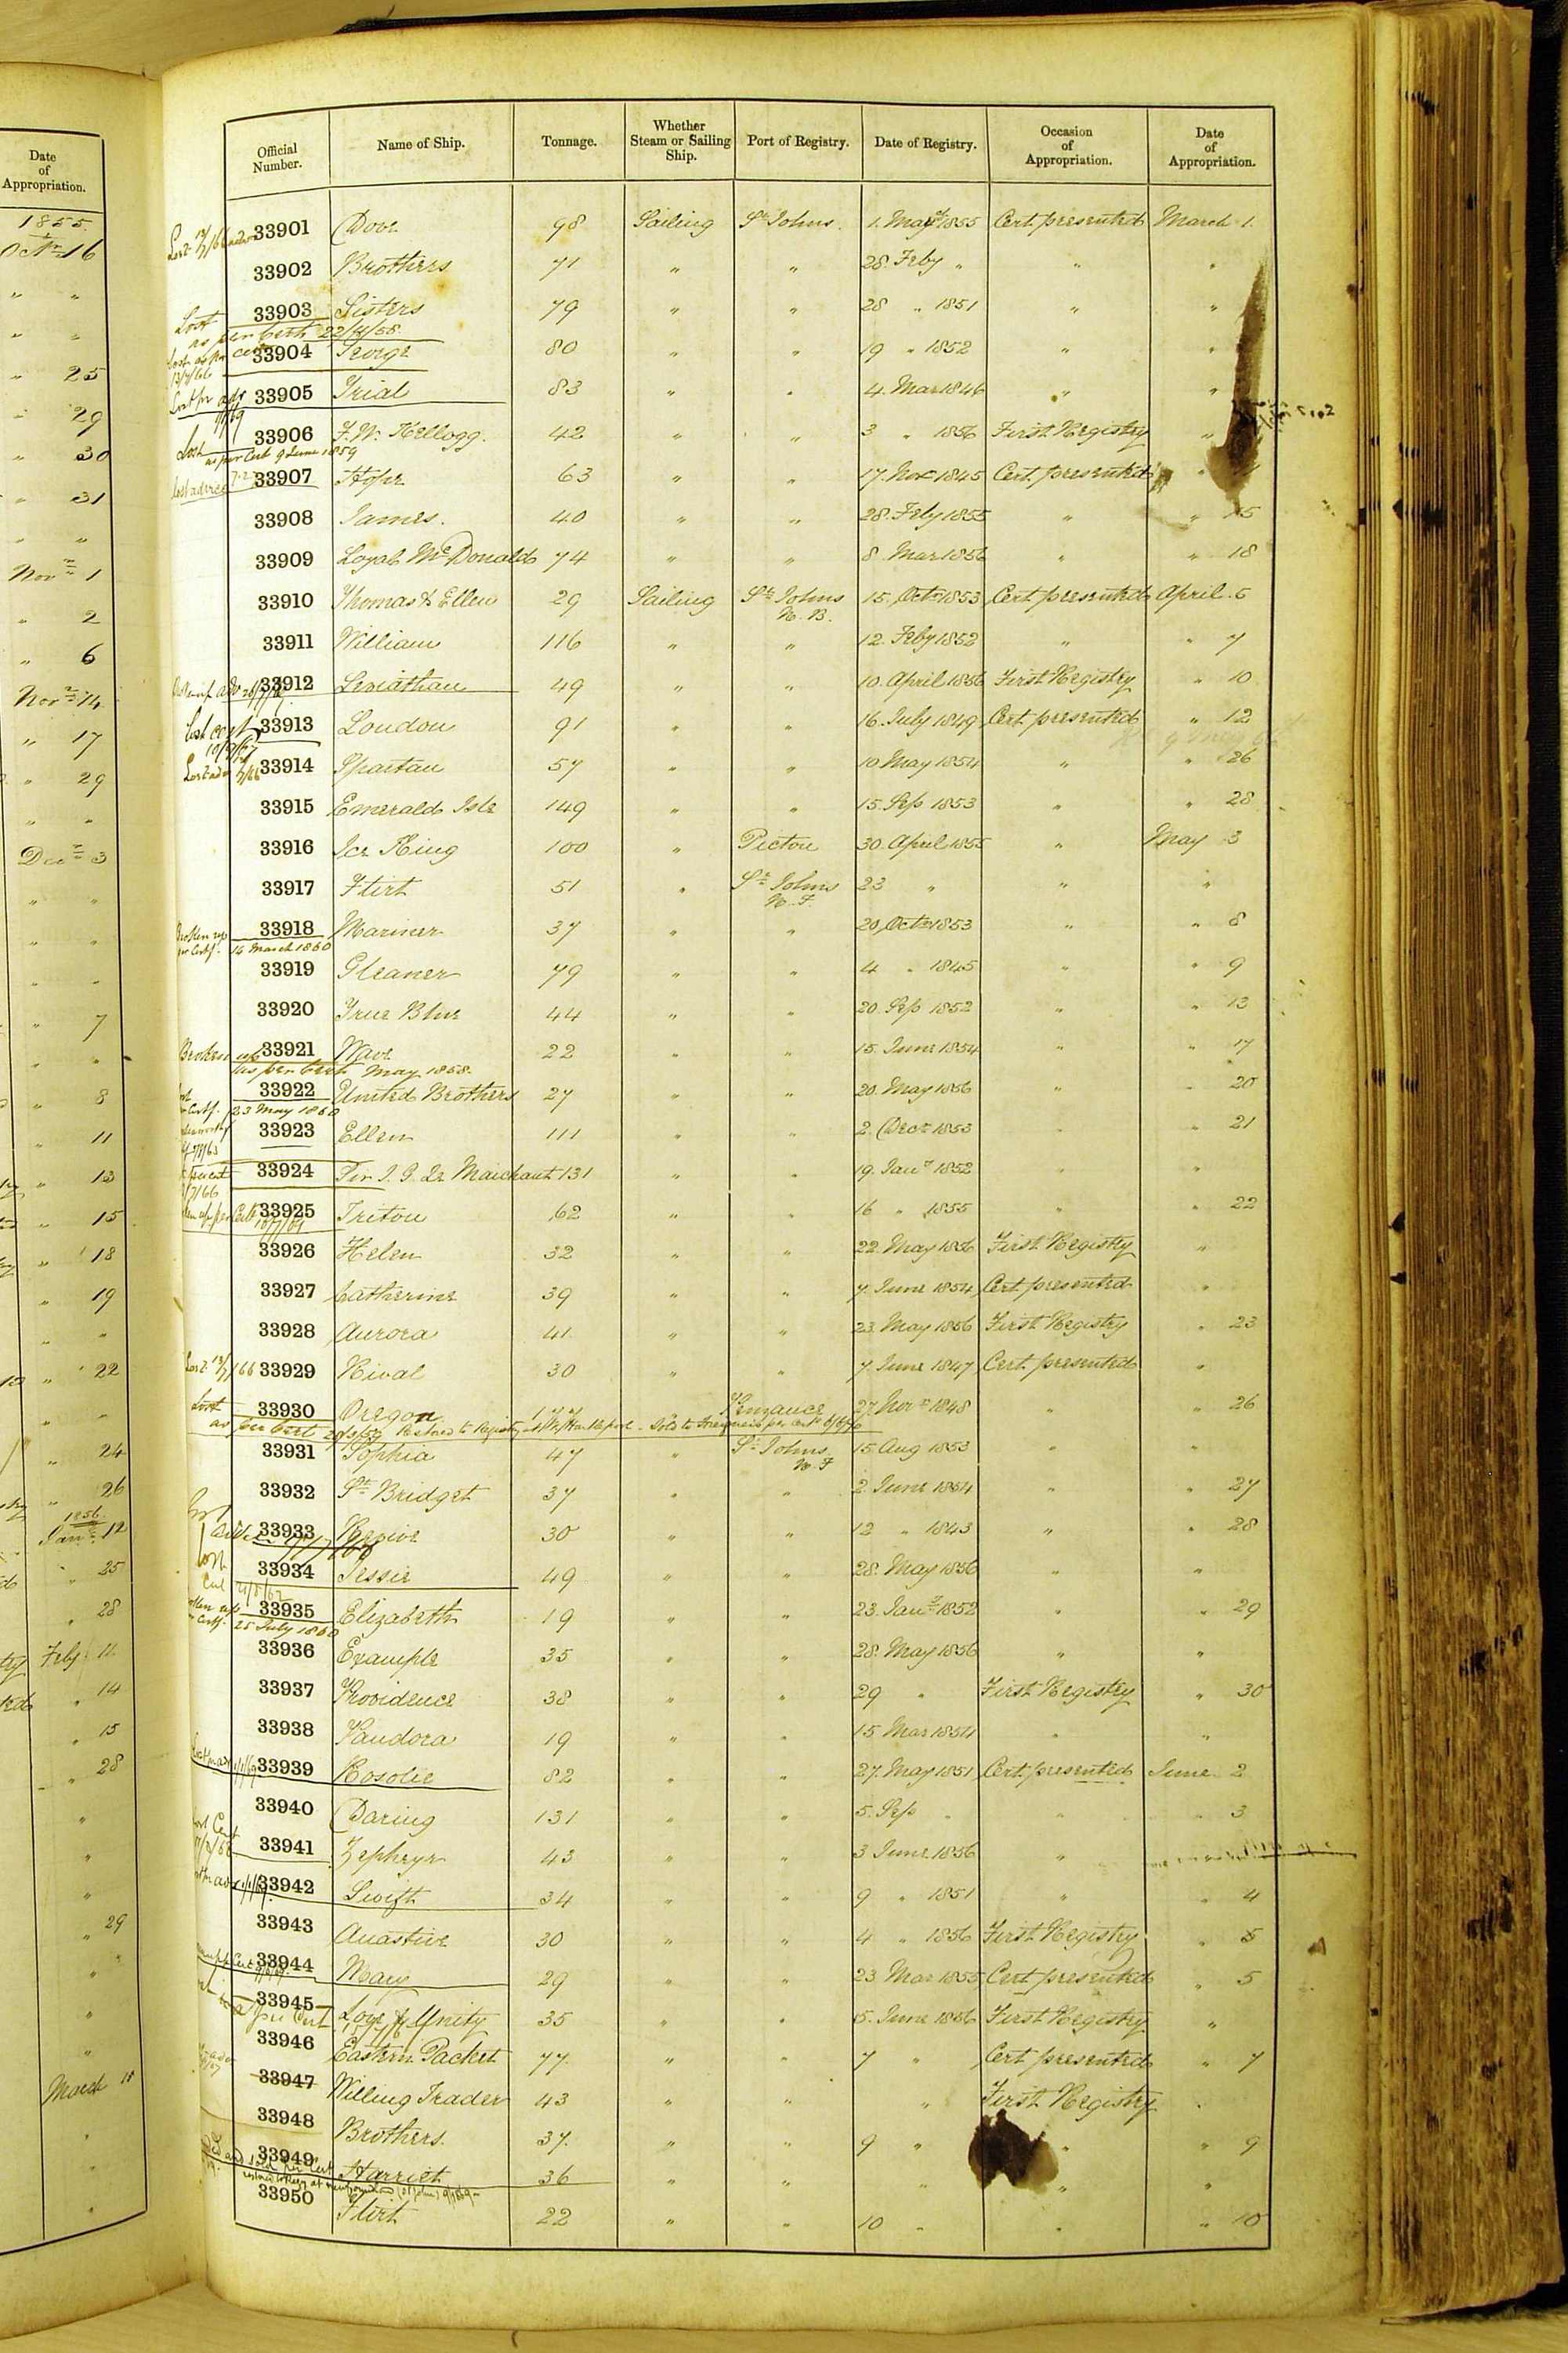 Date
of
Appropriation.
1855
Octr 16
" "
" "
" 25
" 29
" 30
" 31
" "
Novr 1
" 2
" 6
Novr 14
" 17
" 29
" "
Decr 3
" "
" "
" "
" 7
" "
" 8
" 11
" 13
" 15
" 18
" 19
" "
" 22
" "
" 24
" 26
1856
Jany 12
" 25
" 28
Feby 11
" 14
" 15
" 28
"
"
"
" 29
"
"
"
March 18
Official Number. Name of Ship. Tonnage. Whether Steam or Sailing Ship. Port of Registry. Date of Registry. Occasion of Appropriation. Date of Appropriation.
33901 Dove 98 Sailing St Johns. 1. May 1855 Cert presented March 1.
33902 Brothers 71 " " 28. Feby " " "
Lost 33903 Sisters 79 " " 28 " 1851 " "
as per Cert 22/4/58
33904 George 80 " " 19 " 1852 " "
13/7/66
33905 Trial 83 " " 4. Mar 1846 " "
33906 F. W. Kellogg. 42 " " 3 " 1856 First Registry "
Lost as per Cert 9 June 1859
33907 Hope 63 " " 17. Novr 1845 Cert. presented "
33908 James. 40 " " 28. Feby 1855 " " 15
33909 Loyal McDonald 74 " " 8. Mar 1856 " " 18
33910 Thomas & Ellen 29 Sailing St Johns 15. Octr 1853 Cert presented April 5
N. B.
33911 William 116 " " 12. Feby 1852 " " 7
33912 Leviathan 49 " " 10. April 1856 First Registry " 10
33913 London 91 " " 16. July 1849 Cert presented " 12
33914 Spartan 57 " " 10 May 1854 " " 26
33915 Emerald Isle 149 " " 15. Sep 1853 " " 28
33916 Ice King 100 " Pictou 30. April 1855 " May 3
33917 Flirt 51 " St Johns 23 " " "
N. F.
Broken up per Certf. 33918 Mariner 37 " " 20, Octr 1853 " " 8
14 March 1860
33919 Gleaner 79 " " 4 " 1845 " " 9
33920 True Blue 44 " " 20. Sep 1852 " " 13
Broken up 33921 Wave 22 " " 15. June 1854 " " 17
as per Cert May 1858.
33922 United Brothers 27 " " 20. May 1856 " " 20
23 May 1860
33923 Ellen 111 " " 2. Decr 1853 " " 21
33924 Sir J. G. Le Marchant 131 " " 19. Jany 1852 " "
33925 Triton 62 " " 16 " 1855 " " 22
33926 Helen 32 " " 22. May 1856 First Registry "
33927 Catherine 39 " " 7. June 1854 Cert presented "
33928 Aurora 41 " " 23. May 1856 First Registry " 23
33929 Rival 30 " " 7. June 1847 Cert. presented "
Lost 33930 Oregon " Penzance 27. Novr 1848 " " 26
as per Cert
33931 Sophia 47 " St Johns. 15. Aug 1853 " "
N. F
33932 St Bridget 37 " " 2. June 1854 " " 27
33933 30 " " 12 " 1843 " " 28
Lost 33934 Jessie 49 " " 28. May 1856 " "
33935 Elizabeth 19 " " 23. Jany 1852 " " 29
25 July 1860
33936 Example 35 " " 28. May 1856 " "
33937 Providence 38 " " 29 " First Registry " 30
33938 Pandora 19 " " 15. Mar 1854 " "
33939 Rosolie 82 " " 27. May 1851 Cert. presented June. 2
33940 Daring 131 " " 5. Sep " " " 3
33941 Zephyr 43 " " 3 June. 1856 "
33942 Swift 34 " " 9 " 1851 " " 4
33943 30 " " 4 " 1856 First Registry " 5
33944 Mary 29 " " 23 Mar 1855 Cert. presented " 5
33945 Love & Unity 35 " " 5. June 1856 First Registry "
33946 Eastern Packet 77. " " 7 " Cert presented " 7
33947 Willing Trader 43 " " " First Registry "
33948 Brothers. 37. " " 9 " " " 9
33949 Harriet 36 " " " " "
33950 Flirt 22 " " 10 " " " 10